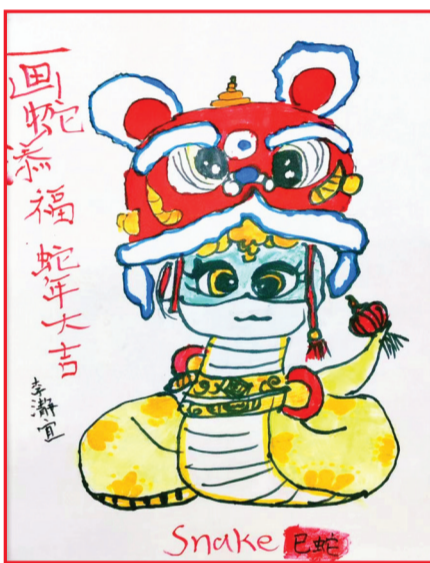 画蛇添福 蛇年大吉
李瀞宜
Snake 巳蛇